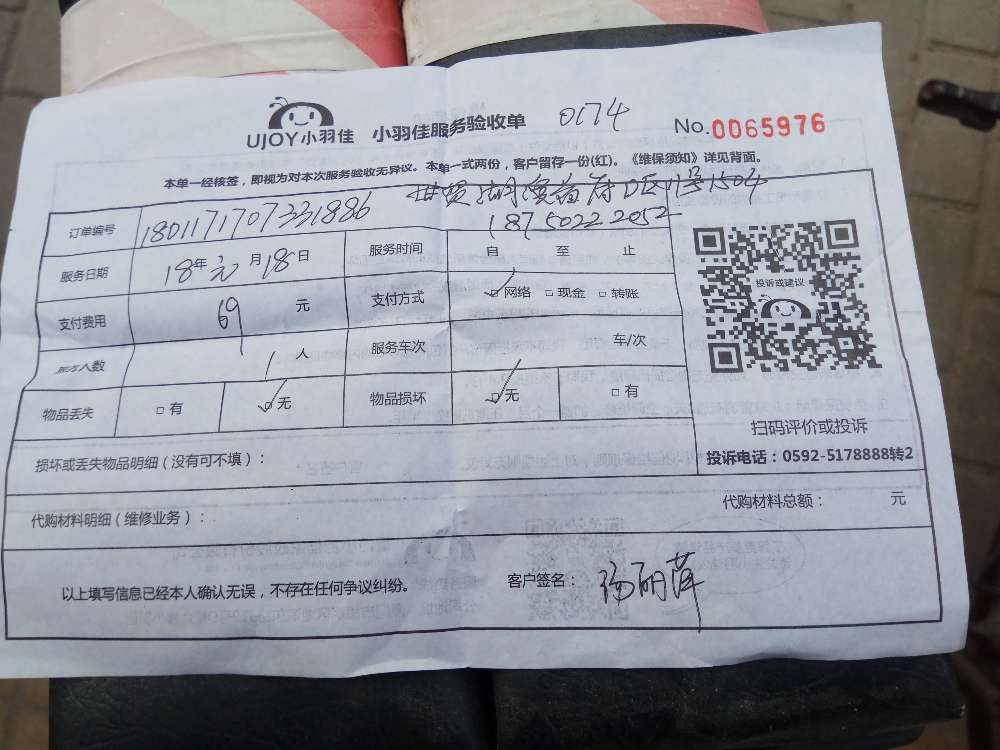 UJOY小羽佳 小羽佳服务验收单 0174 No.0065976
本单一经核签，即视为对本次服务验收无异议。本单一式两份，客户留存一份(红)。《维保须知》详见背面。
订单编号 1801171707331886 世贸湖滨首府D区1号1504
18750222052
服务日期 18年元月18日 服务时间 自 至 止
支付费用 69 元 支付方式 ☑网络 □现金 □转账
投诉或建议
服务人数 1人 服务车次 车/次
物品丢失 □有 ☑无 物品损坏 ☑无 □有
扫码评价或投诉
投诉电话：0592-5178888转2
损坏或丢失物品明细（没有可不填）：
代购材料明细（维修业务）： 代购材料总额： 元
以上填写信息已经本人确认无误，不存在任何争议纠纷。 客户签名：杨丽萍